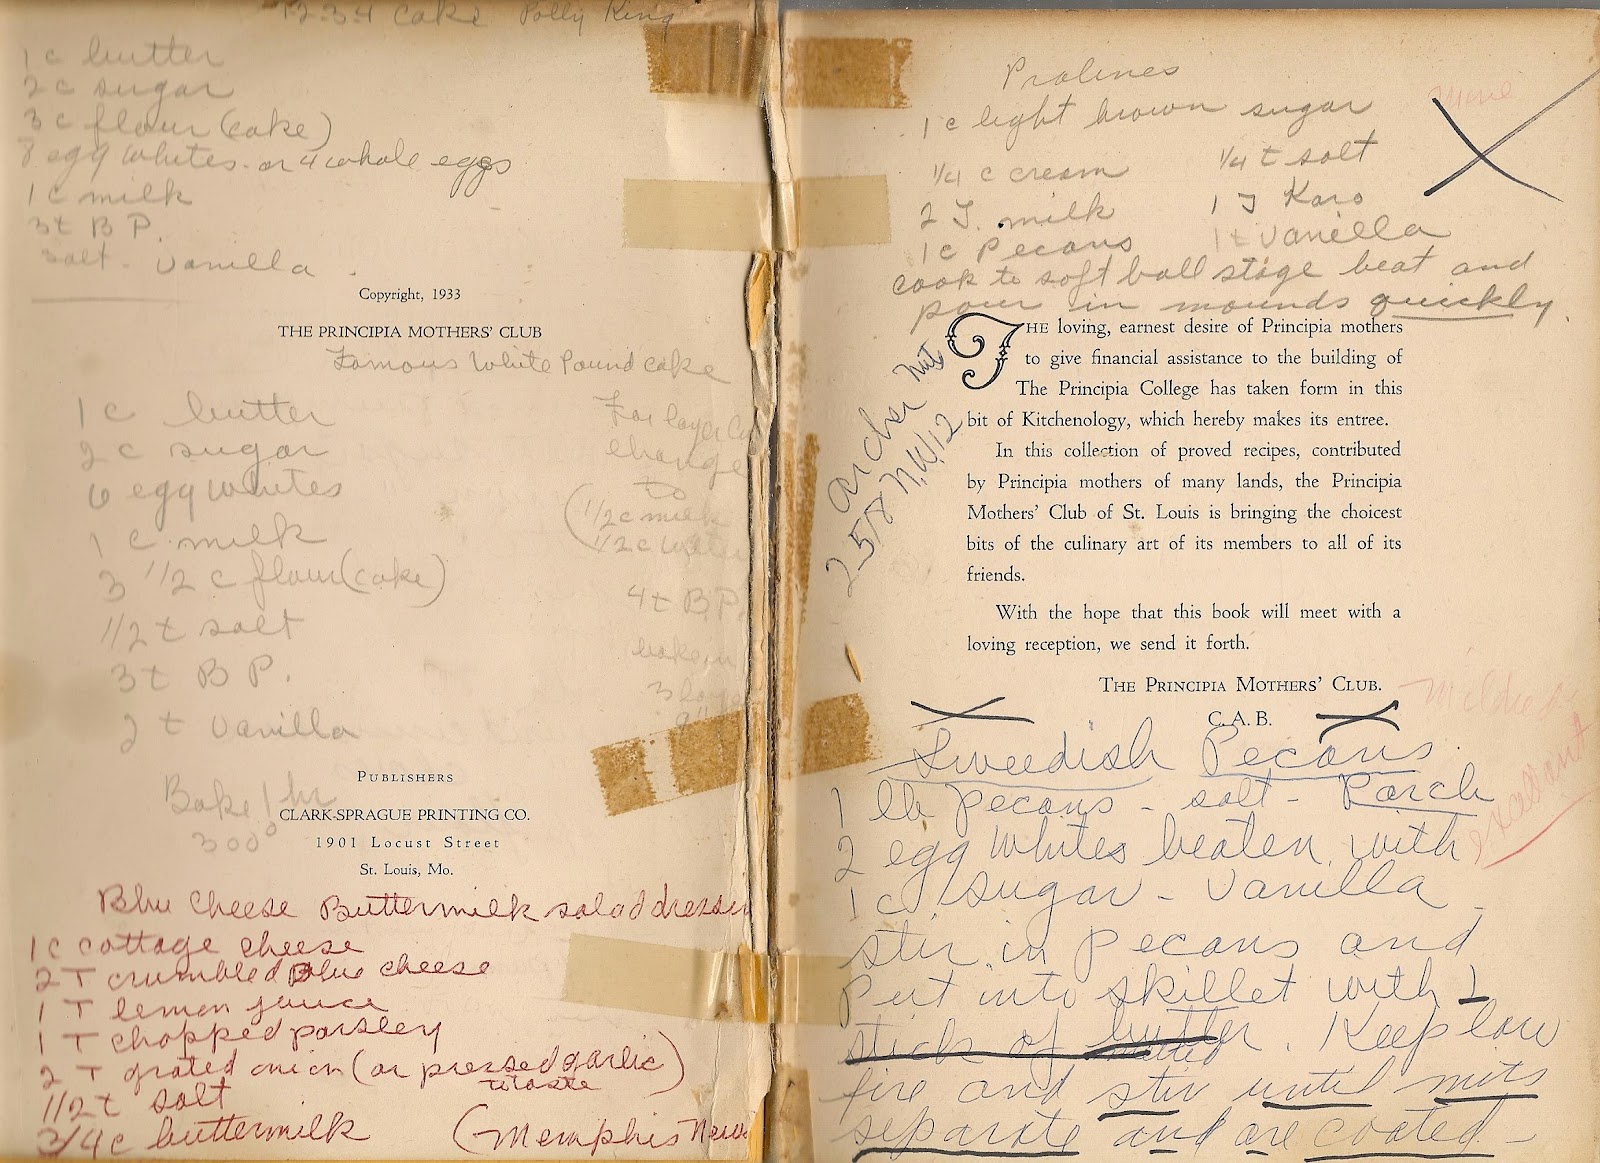 1234 cake Polly King
1 c butter
2 c sugar
3 c flour (cake)
8 egg whites - or 4 whole eggs
1 c milk
3 t B P.
salt - Vanilla
Copyright, 1933
THE PRINCIPIA MOTHERS' CLUB
Famous White Pound cake
1 c butter
2 c sugar
6 egg whites
1 c milk
3 1/2 c flour (cake)
1/2 t salt
3 t B P.
2 t Vanilla
Bake 1 hr
300°
For layer
change
to
(1/2 c milk
1/2 c water
4 t B P.
bake in
3
PUBLISHERS
CLARK-SPRAGUE PRINTING CO.
1901 Locust Street
St. Louis, Mo.
Blu Cheese Buttermilk salad
1 c cottage cheese
2 T crumbled Blue cheese
1 T lemon juuce
1 T chopped parsley
2 T grated onion (or pressed garlic)
to taste
1/2 t salt
3/4 c buttermilk (Memphis
Pralines
1 c light brown sugar
1/4 c cream 1/4 t salt
2 T. milk 1 T Karo
1 c Pecans 1 t Vanilla
cook to soft ball stage beat and
pour in mounds quickly.
Archer Nut
258 N.W. 12
THE loving, earnest desire of Principia mothers
to give financial assistance to the building of
The Principia College has taken form in this
bit of Kitchenology, which hereby makes its entree.
In this collection of proved recipes, contributed
by Principia mothers of many lands, the Principia
Mothers' Club of St. Louis is bringing the choicest
bits of the culinary art of its members to all of its
friends.
With the hope that this book will meet with a
loving reception, we send it forth.
THE PRINCIPIA MOTHERS' CLUB.
C. A. B.
Swedish Pecans
1 lb Pecans - salt - Parch
2 egg whites beaten with
1 c sugar - Vanilla
stir in Pecans and
Put into skillet with 1
stick of butter. Keep low
melted
fire and stir until nuts
separate and are coated -